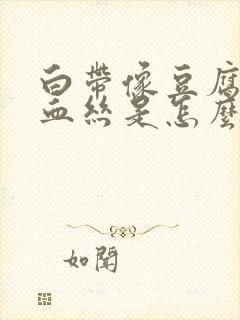 白帶像豆腐
血絲是怎麼
如聞